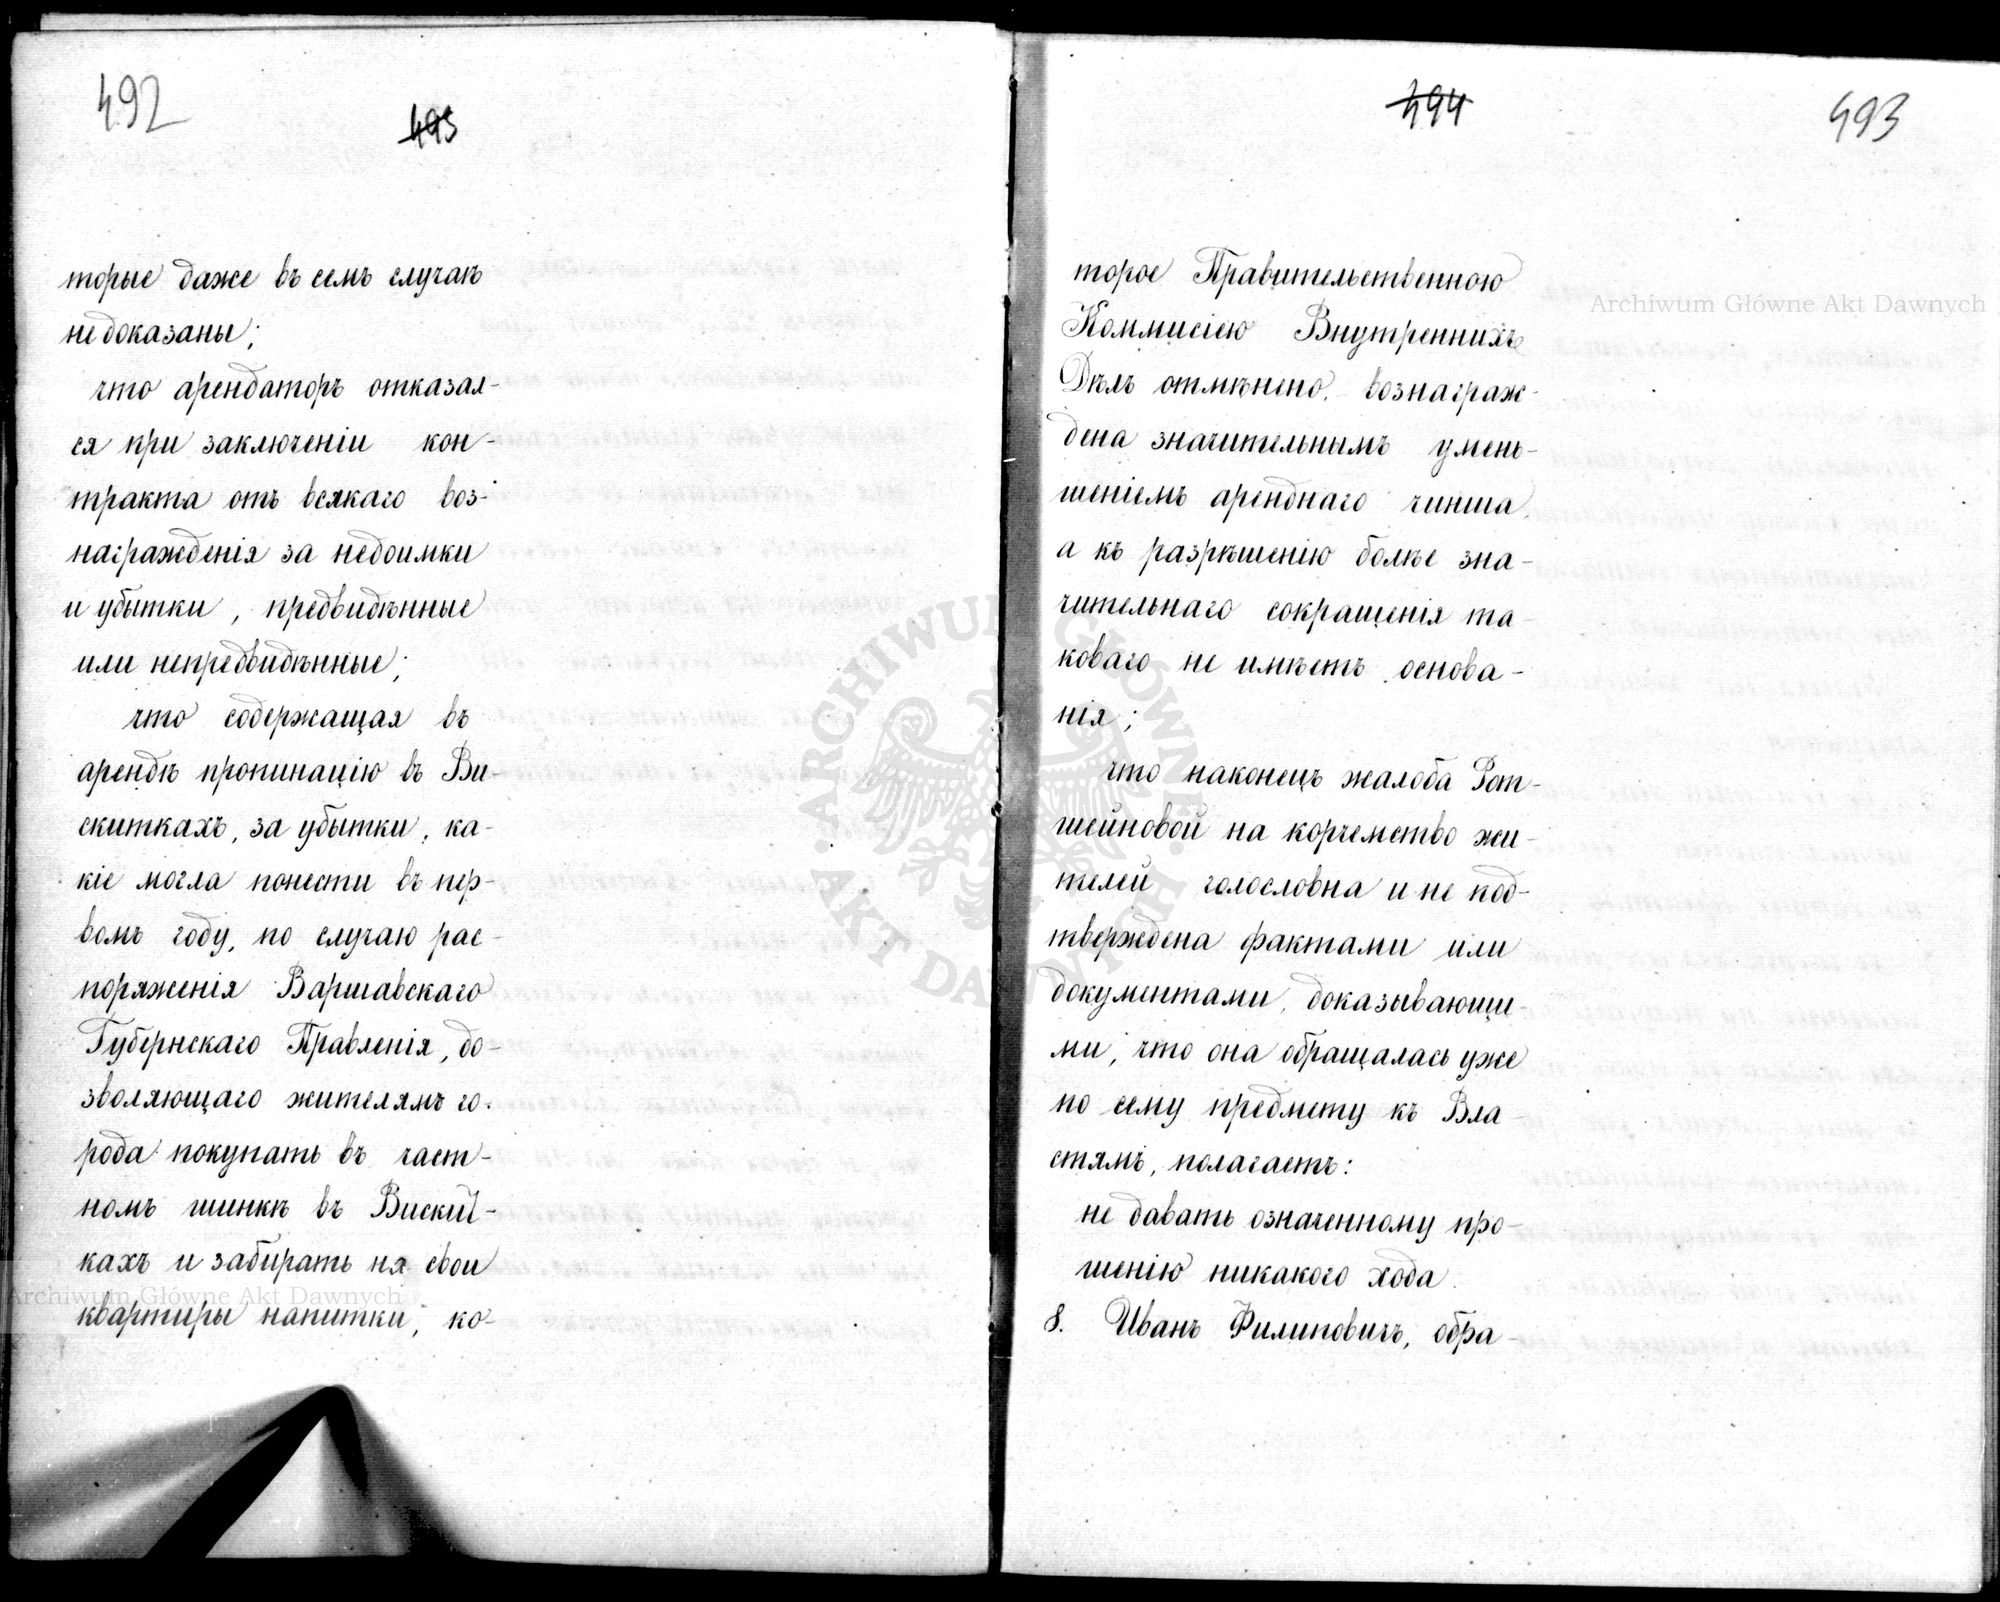 492
493
торые даже въ семъ случаѣ
не доказаны;
что арендаторъ отказал-
ся при заключеніи кон-
тракта отъ всякаго воз-
награжденія за недоимки
и убытки, предвидѣнные
или непредвидѣнные;
что содержащая въ
арендѣ пропинацію въ Ви-
скиткахъ, за убытки, ка-
кіе могла понести въ пер-
вомъ году, по случаю рас-
поряженія Варшавскаго
Губернскаго Правленія, до-
зволяющаго жителямъ го-
рода покупать въ част-
номъ шинкѣ въ Вискит-
кахъ и забирать на свои
квартиры напитки, ко-
Archiwum Główne Akt Dawnych
494
493
торое Правительственною
Коммисіею Внутреннихъ
Дѣлъ отмѣнено, вознаграж-
дена значительнымъ умень-
шеніемъ аренднаго чинша,
а къ разрѣшенію болѣе зна-
чительнаго сокращенія та-
коваго не имѣетъ основа-
нія;
что наконецъ жалоба Рот-
штейновой на корчемство жи-
телей голословна и не под-
тверждена фактами или
документами, доказывающи-
ми, что она обращалась уже
по сему предмету къ Вла-
стямъ, полагаетъ:
не давать означенному про-
шенію никакого хода.
8. Иванъ Филиповичъ, обра-
Archiwum Główne Akt Dawnych
ARCHIWUM GŁÓWNE
AKT DAWNYCH